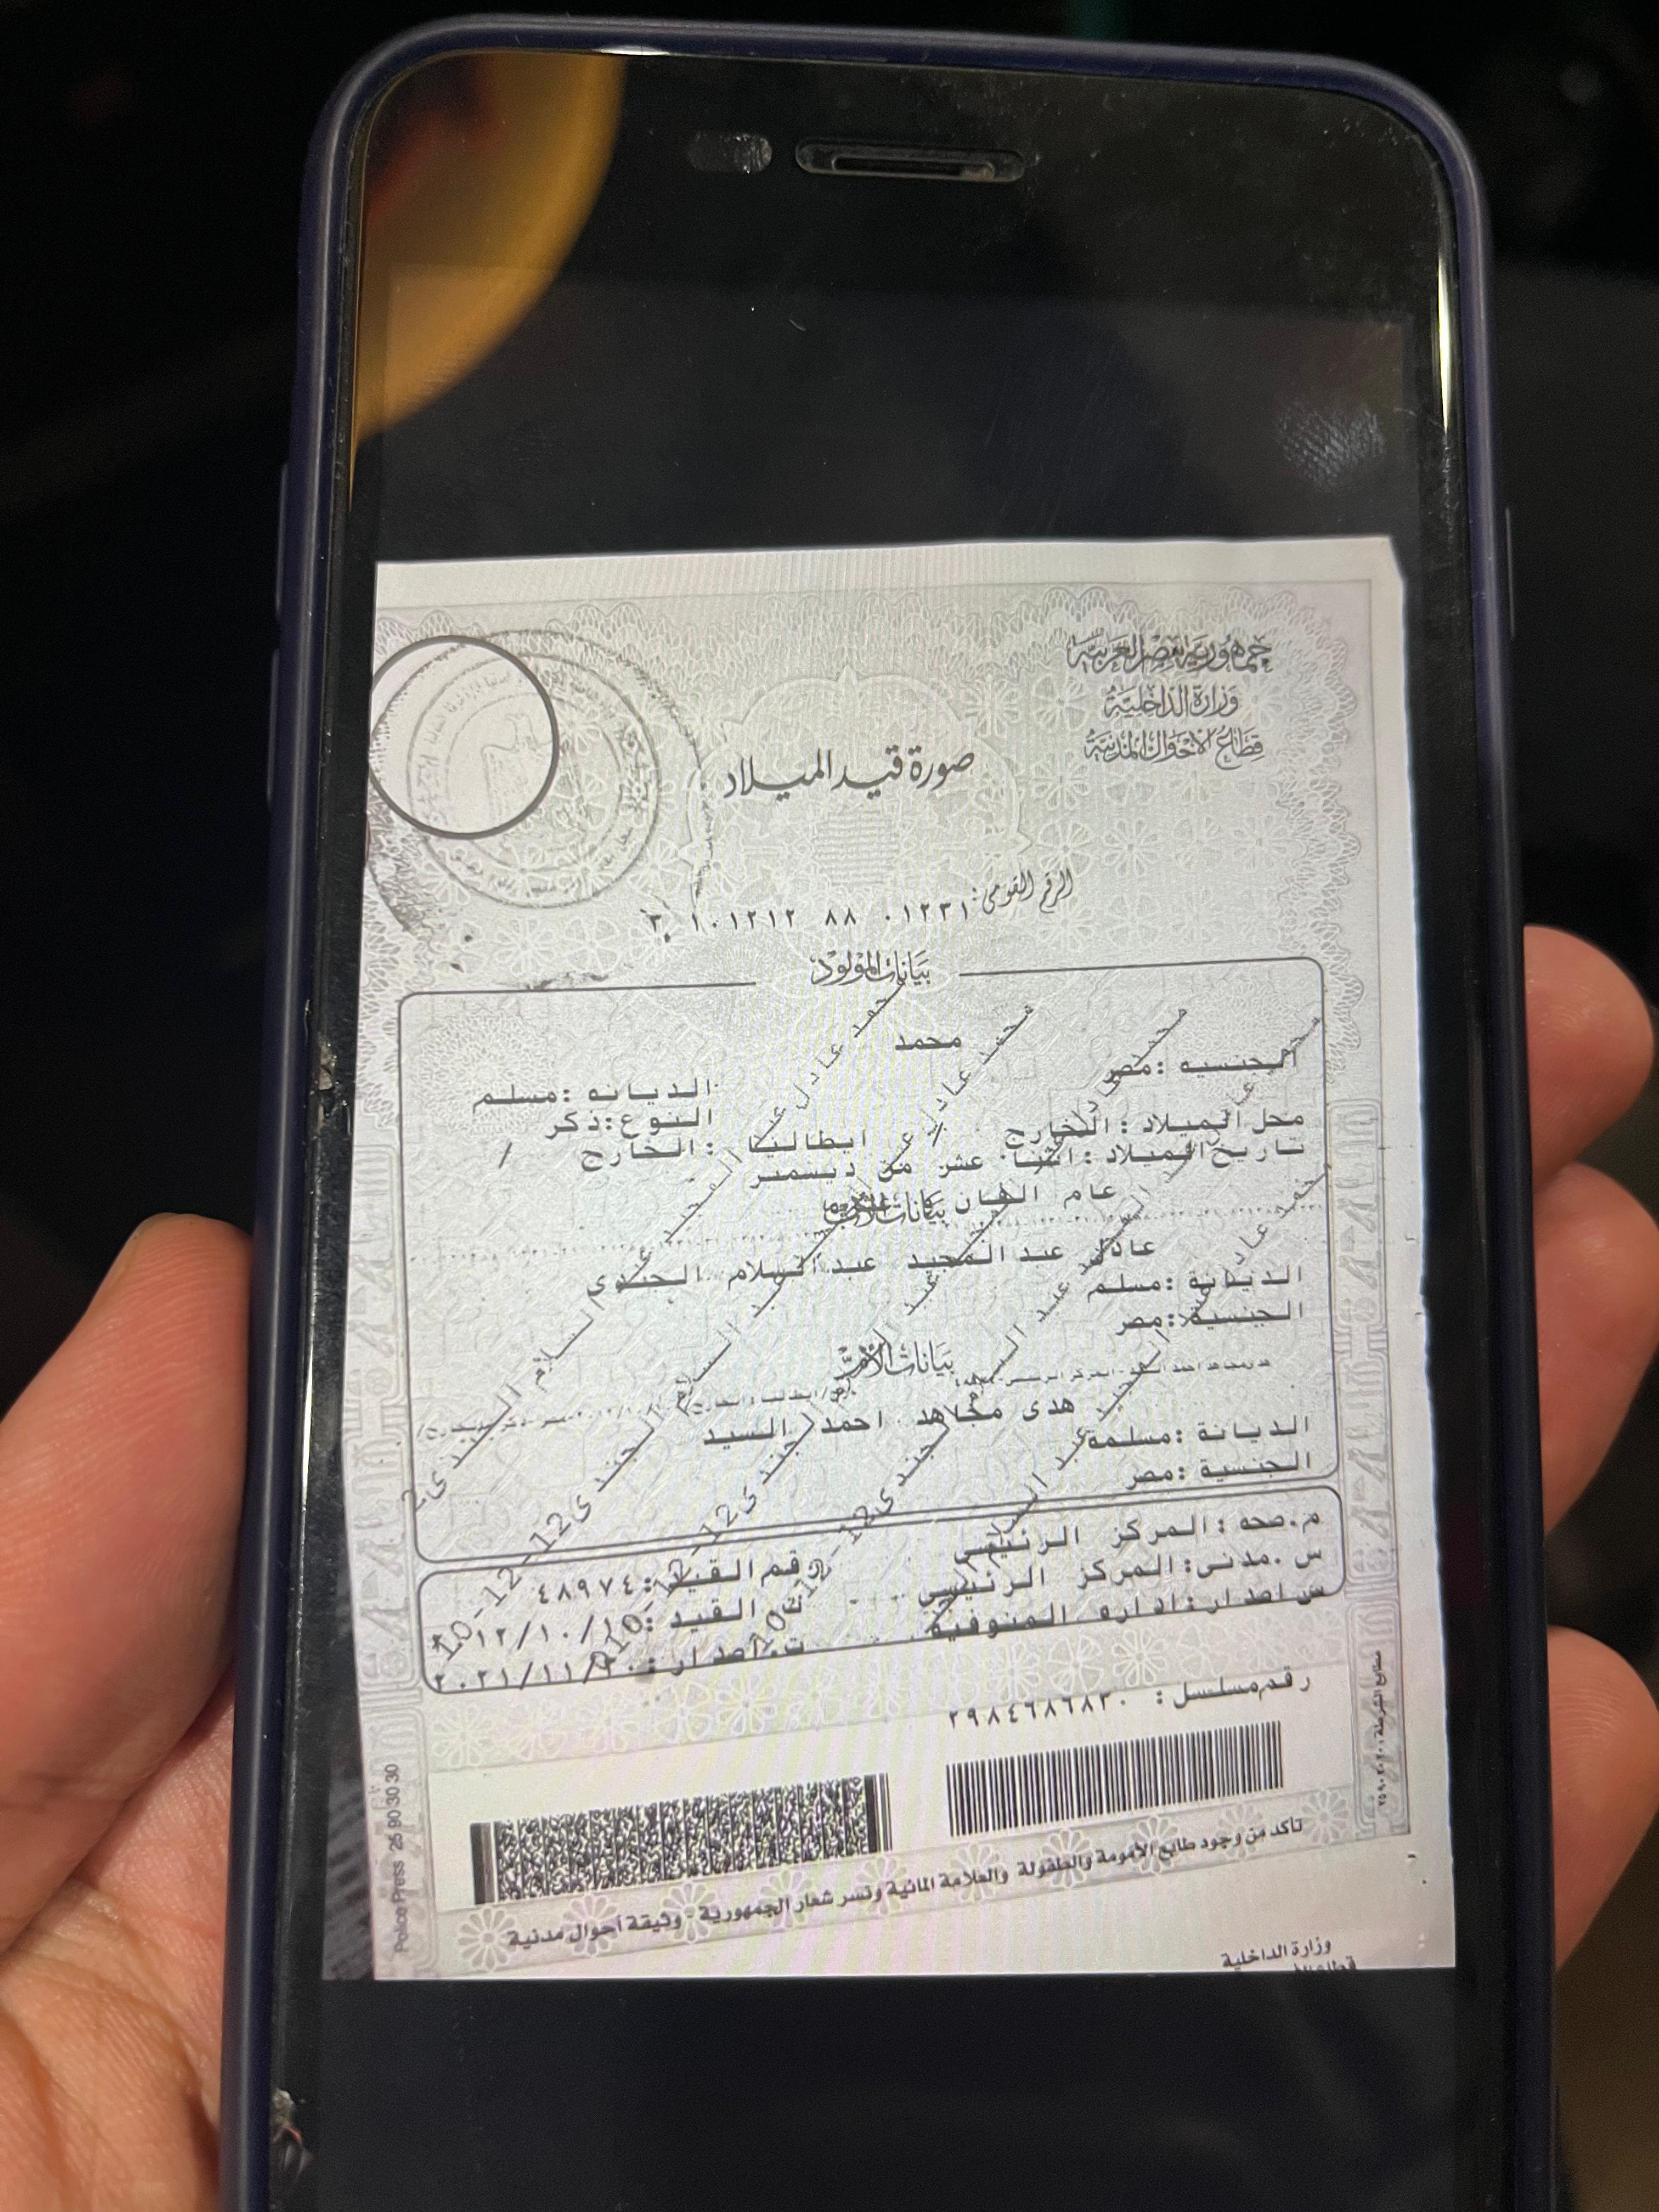 جمهورية مصر العربية
وزارة الداخلية
قطاع الأحوال المدنية
صورة قيد الميلاد
الرقم القومى:
٣ ١٠١٢١٢ ٨٨ ٠١٢٣١
بيانات المولود
محمد
الجنسيه :مصر
الديانه :مسلم
محل الميلاد :الخارج / ايطاليا
النوع:ذكر
تاريخ الميلاد :اثنا عشر من ديسمبر
:الخارج /
عام الفان
بيانات الأب
عادل عبد المجيد عبد السلام الجندى
الديانة :مسلم
الجنسية :مصر
بيانات الأم
هدى مجاهد احمد السيد
الديانة :مسلمة
الجنسية :مصر
م.صحه :المركز الرئيسى
رقم القيد :٤٨٩٧٤
س.مدنى :المركز الرئيسي
ت. القيد :
س اصدار :اداره المنوفية
ت.اصدار :٢٠٢١/١١/٢٠
رقم مسلسل : ٢٩٨٤٦٨٦٨٢٠
تأكد من وجود طابع الأمومة والطفولة والعلامة المائية ونسر شعار الجمهورية - وثيقة أحوال مدنية
وزارة الداخلية
Police Press 25 90 30 30